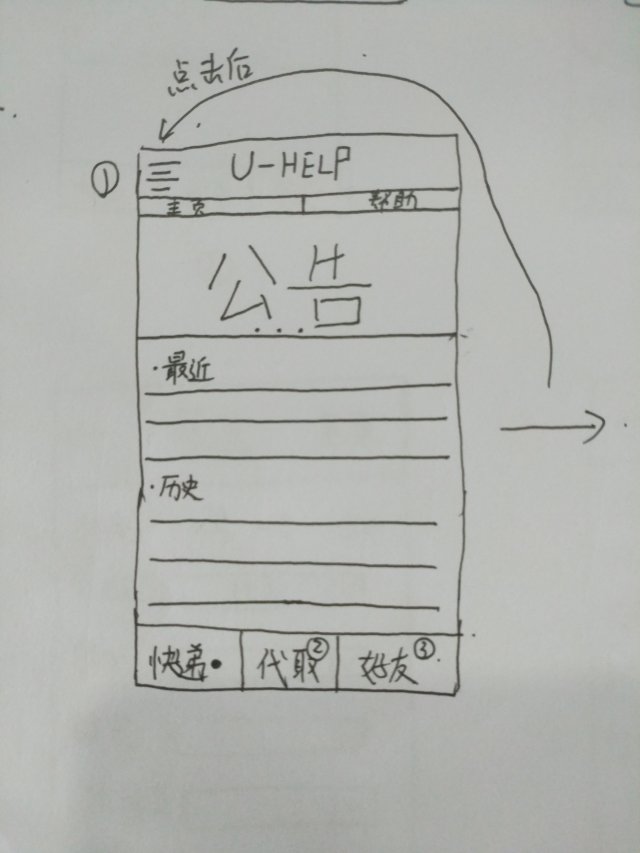 点击后
①
U-HELP
主页 帮助
公告
...
·最近
·历史
快递· 代取② 好友③